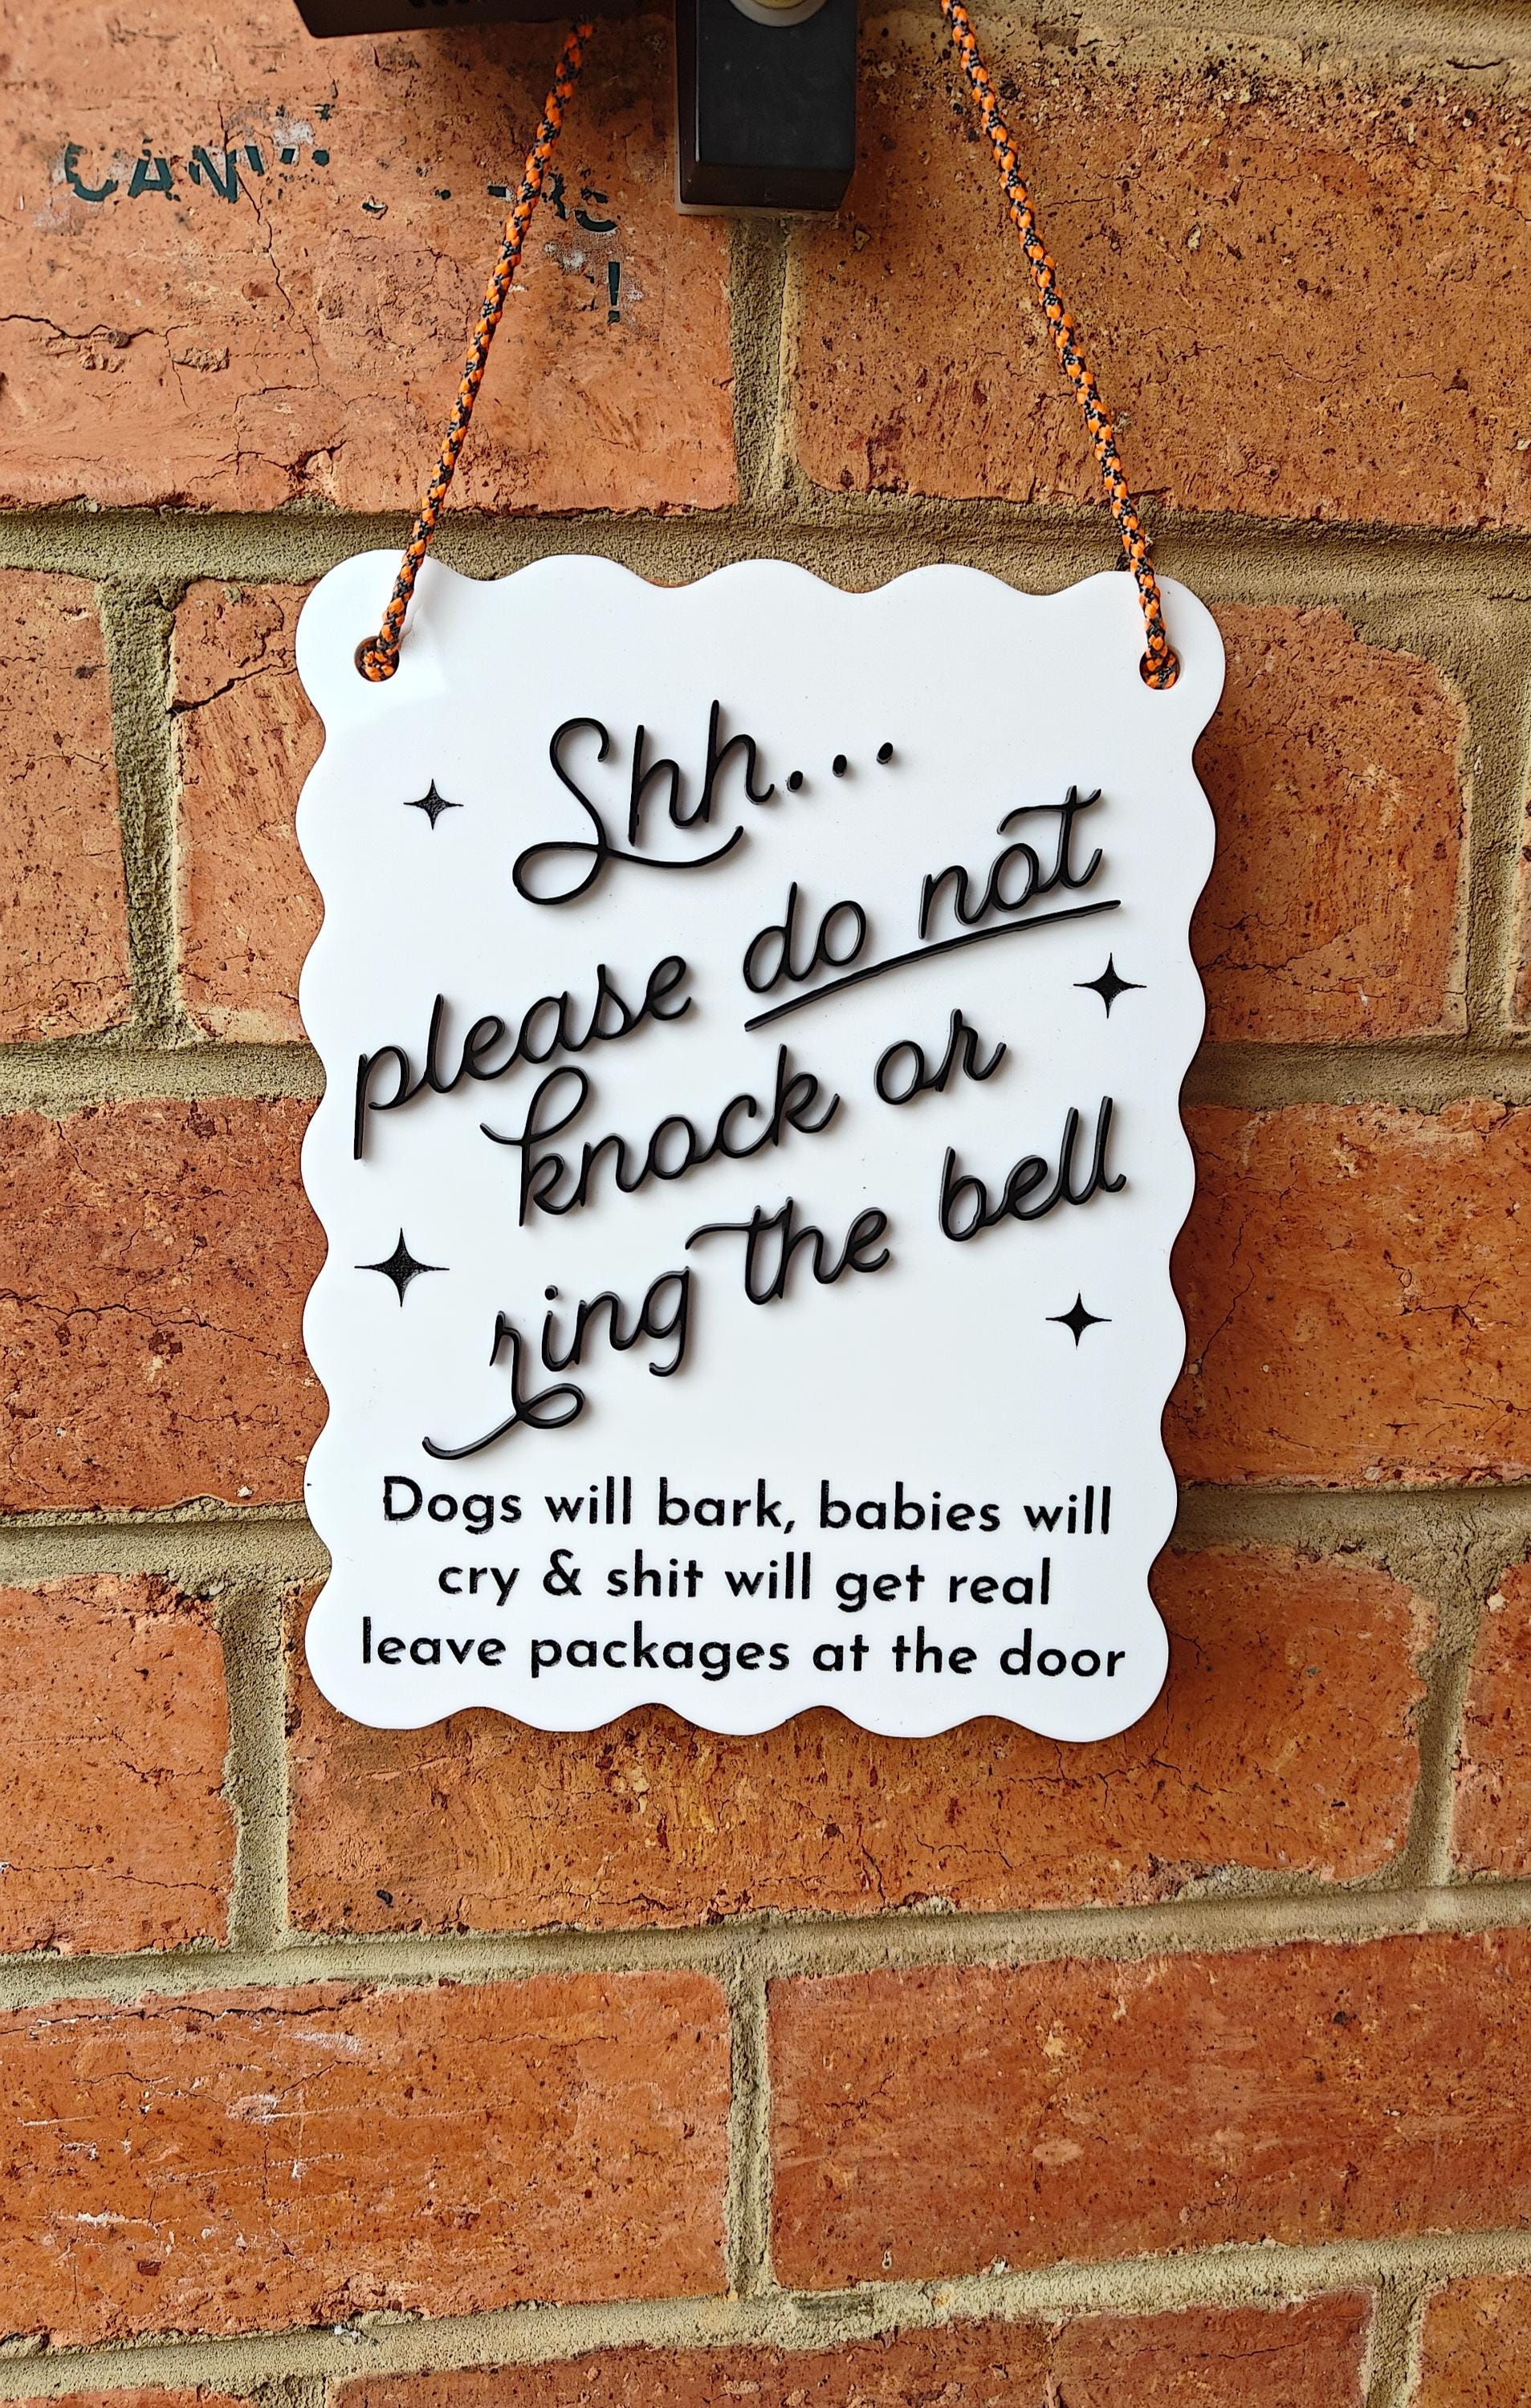 Shh...
please do not
knock or
ring the bell
Dogs will bark, babies will
cry & shit will get real
leave packages at the door